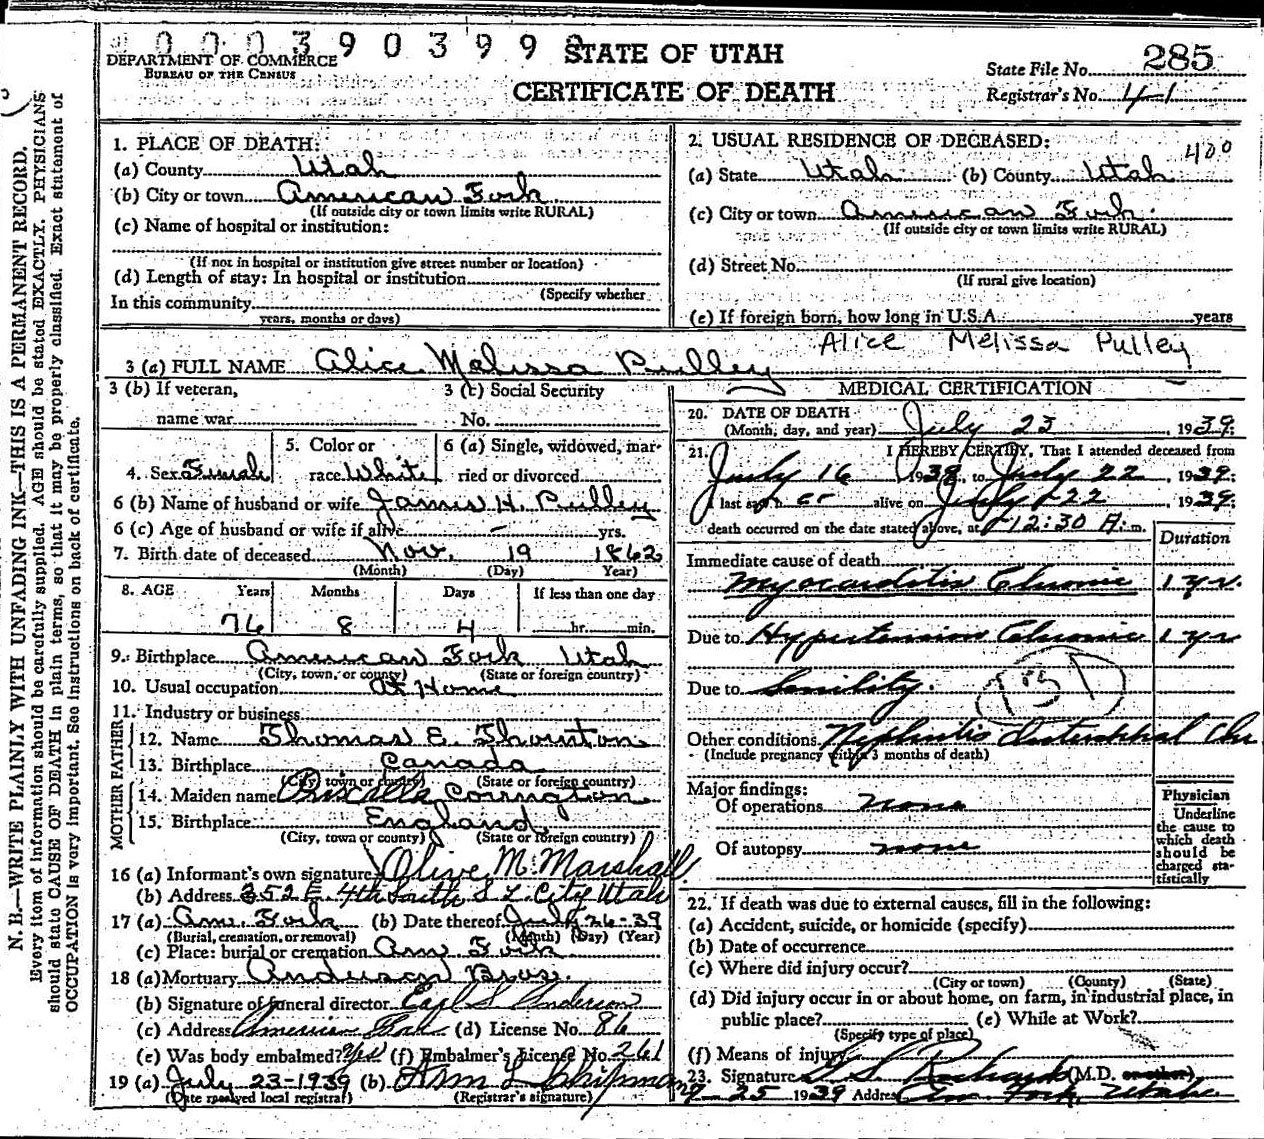 0 0 0 3 9 0 3 9 9
STATE OF UTAH
DEPARTMENT OF COMMERCE
BUREAU OF THE CENSUS
CERTIFICATE OF DEATH
State File No. 285
Registrar's No. 41
N. B.—WRITE PLAINLY WITH UNFADING INK—THIS IS A PERMANENT RECORD.
Every item of information should be carefully supplied. AGE should be stated EXACTLY. PHYSICIANS
should state CAUSE OF DEATH in plain terms, so that it may be properly classified. Exact statement of
OCCUPATION is very important. See instructions on back of certificate.
1. PLACE OF DEATH:
(a) County Utah
(b) City or town American Fork
(If outside city or town limits write RURAL)
(c) Name of hospital or institution:
(If not in hospital or institution give street number or location)
(d) Length of stay: In hospital or institution
(Specify whether
In this community
years, months or days)
2. USUAL RESIDENCE OF DECEASED:
400
(a) State Utah (b) County Utah
(c) City or town American Fork.
(If outside city or town limits write RURAL)
(d) Street No.
(If rural give location)
(e) If foreign born, how long in U.S.A. years
3 (a) FULL NAME Alice Melissa Pulley
Alice Melissa Pulley
3 (b) If veteran,
name war
3 (c) Social Security
No.
4. Sex Female
5. Color or
race White
6 (a) Single, widowed, mar-
ried or divorced
6 (b) Name of husband or wife James H. Pulley
6 (c) Age of husband or wife if alive - yrs.
7. Birth date of deceased Nov. 19 1862
(Month) (Day) Year)
8. AGE Years Months Days If less than one day
76 8 4 hr. min.
9. Birthplace American Fork Utah
(City, town, or county) (State or foreign country)
10. Usual occupation At Home
11. Industry or business
FATHER
12. Name Thomas E. Thornton
13. Birthplace Canada
(City, town or county) (State or foreign country)
MOTHER
14. Maiden name Priscilla Covington
15. Birthplace England
(City, town or county) (State or foreign country)
16 (a) Informant's own signature Olive M. Marshall
(b) Address 352 E. 4th South S L. City Utah
17 (a) Am. Fork (b) Date thereof July 26-39
(Burial, cremation, or removal) (Month) (Day) (Year)
(c) Place: burial or cremation Am. Fork
18 (a) Mortuary Anderson Bros.
(b) Signature of funeral director Earl S Anderson
(c) Address American Fork (d) License No. 86
(e) Was body embalmed? Yes (f) Embalmer's License No. 261
19 (a) July 23-1939 (b) Wm L Chipman
(Date received local registrar) (Registrar's signature)
MEDICAL CERTIFICATION
20. DATE OF DEATH
(Month, day, and year) July 23, 1939;
21. I HEREBY CERTIFY, That I attended deceased from
July 16 1938, to July 22, 1939;
I last saw her alive on July 22, 1939;
death occurred on the date stated above, at 12:30 A. m.
Duration
Immediate cause of death
Myocarditis Chronic 1 yr.
Due to Hypertension Chronic 1 yr
Due to Senility.
131
Other conditions Nephritis Interstitial Chr
(Include pregnancy within 3 months of death)
Major findings:
Of operations none
Of autopsy none
Physician
Underline
the cause to
which death
should be
charged sta-
tistically
22. If death was due to external causes, fill in the following:
(a) Accident, suicide, or homicide (specify)
(b) Date of occurrence
(c) Where did injury occur?
(City or town) (County) (State)
(d) Did injury occur in or about home, on farm, in industrial place, in
public place? (e) While at Work?
(Specify type of place)
(f) Means of injury
23. Signature G. S. Richards (M.D. or other)
7-25 1939 Address Am. Fork, Utah.